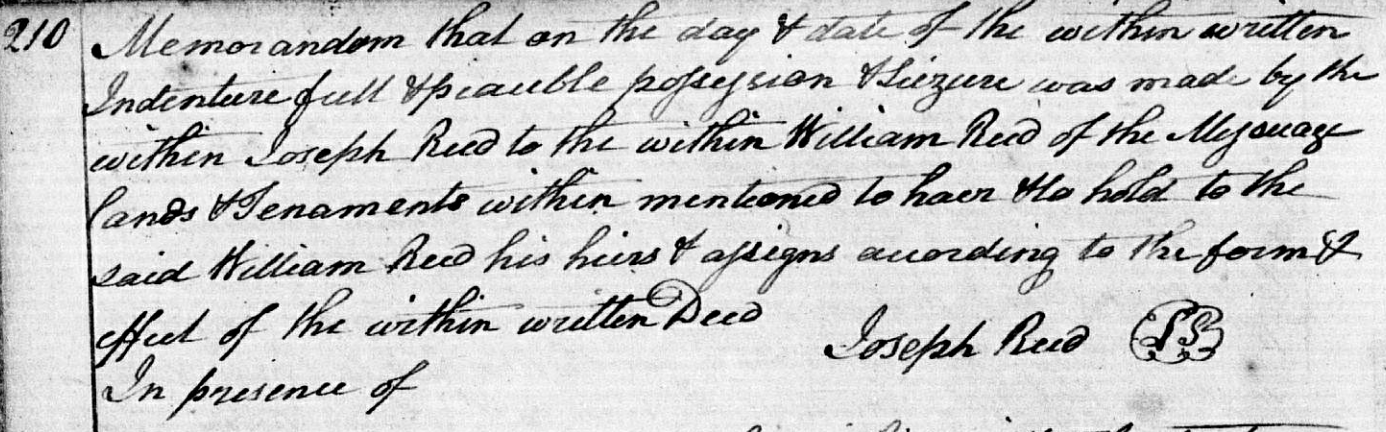 210
Memorandom that on the day & date of the within written
Indenture full & peaceble possession & Siezure was made by the
within Joseph Reed to the within William Reed of the Messuage
lands & Tenaments within mentioned to haer & to hold to the
said William Reed his heirs & assigns acording to the form &
effect of the within written Deed
Joseph Reed LS
In presence of